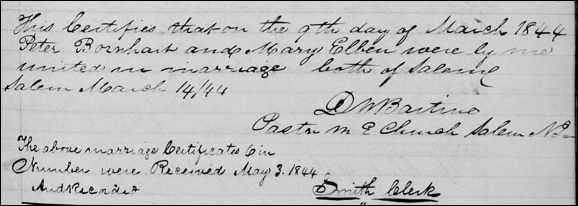 This Certifies that on the 9th day of March 1844
Peter Bornhart and Mary Elben were by me
united in marriage both of Salem
Salem March 14/44
D W Bartine
Pastor M E Church Salem N.
The above marriage Certificates 6 in
Number were Received May 3. 1844
And Recorded
Smith Clerk